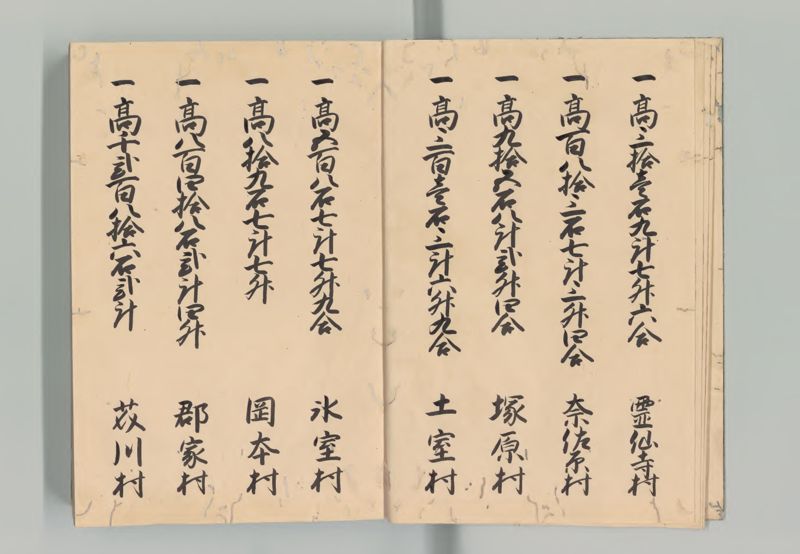 一髙三拾壱石九斗七升六合 霊仙寺村
一髙百八拾三石七斗三升四合 奈佐原村
一髙九拾五石八斗弐升四合 塚原村
一髙三百壱石三斗六升九合 土室村
一髙五百八石七斗七升九合 氷室村
一髙八拾九石七斗七升 岡本村
一髙八百四拾八石弐斗四升 郡家村
一髙千弐百八拾六石弐斗 芥川村